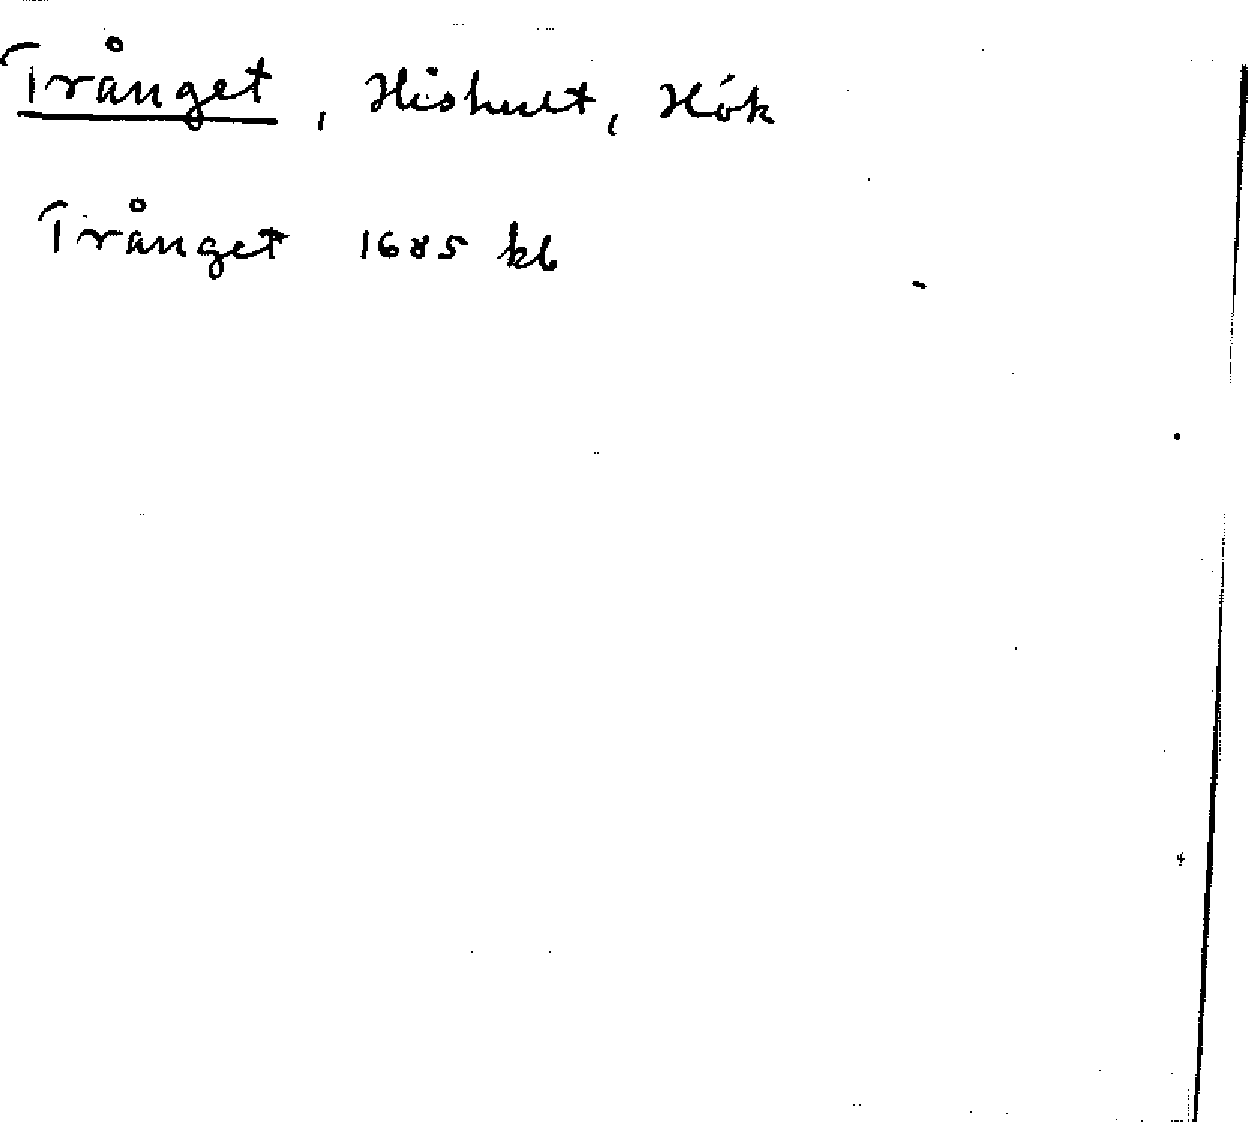 Trånget, Hishult, Hök
Trånget 1685 kb